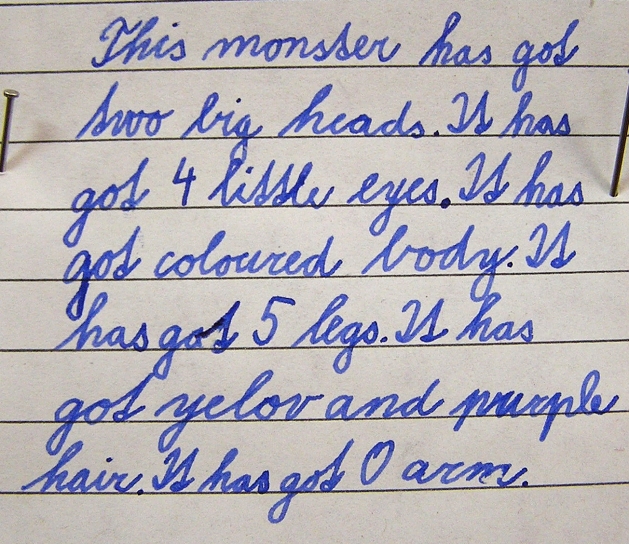 This monster has got
two big heads. It has
got 4 little eyes. It has
got coloured body. It
has got 5 legs. It has
got yelov and purple
hair. It has got 0 arm.